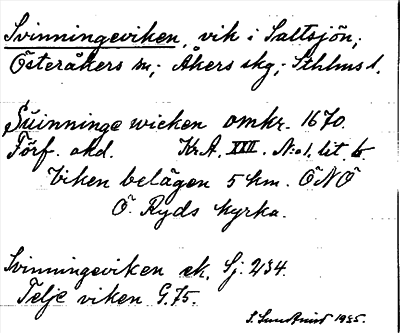 Svinningeviken, vik i Saltsjön;
Österåkers sn; Åkers skg; Sthlms l.
Suinninge wicken omkr. 1670.
Förf. okd. Kr.A. XIII. N:o 1. lit. b.
Viken belägen 5 km. ÖNÖ
Ö. Ryds kyrka.
Svinningeviken ek. Sj. 234.
Telje viken G.75.
1935.